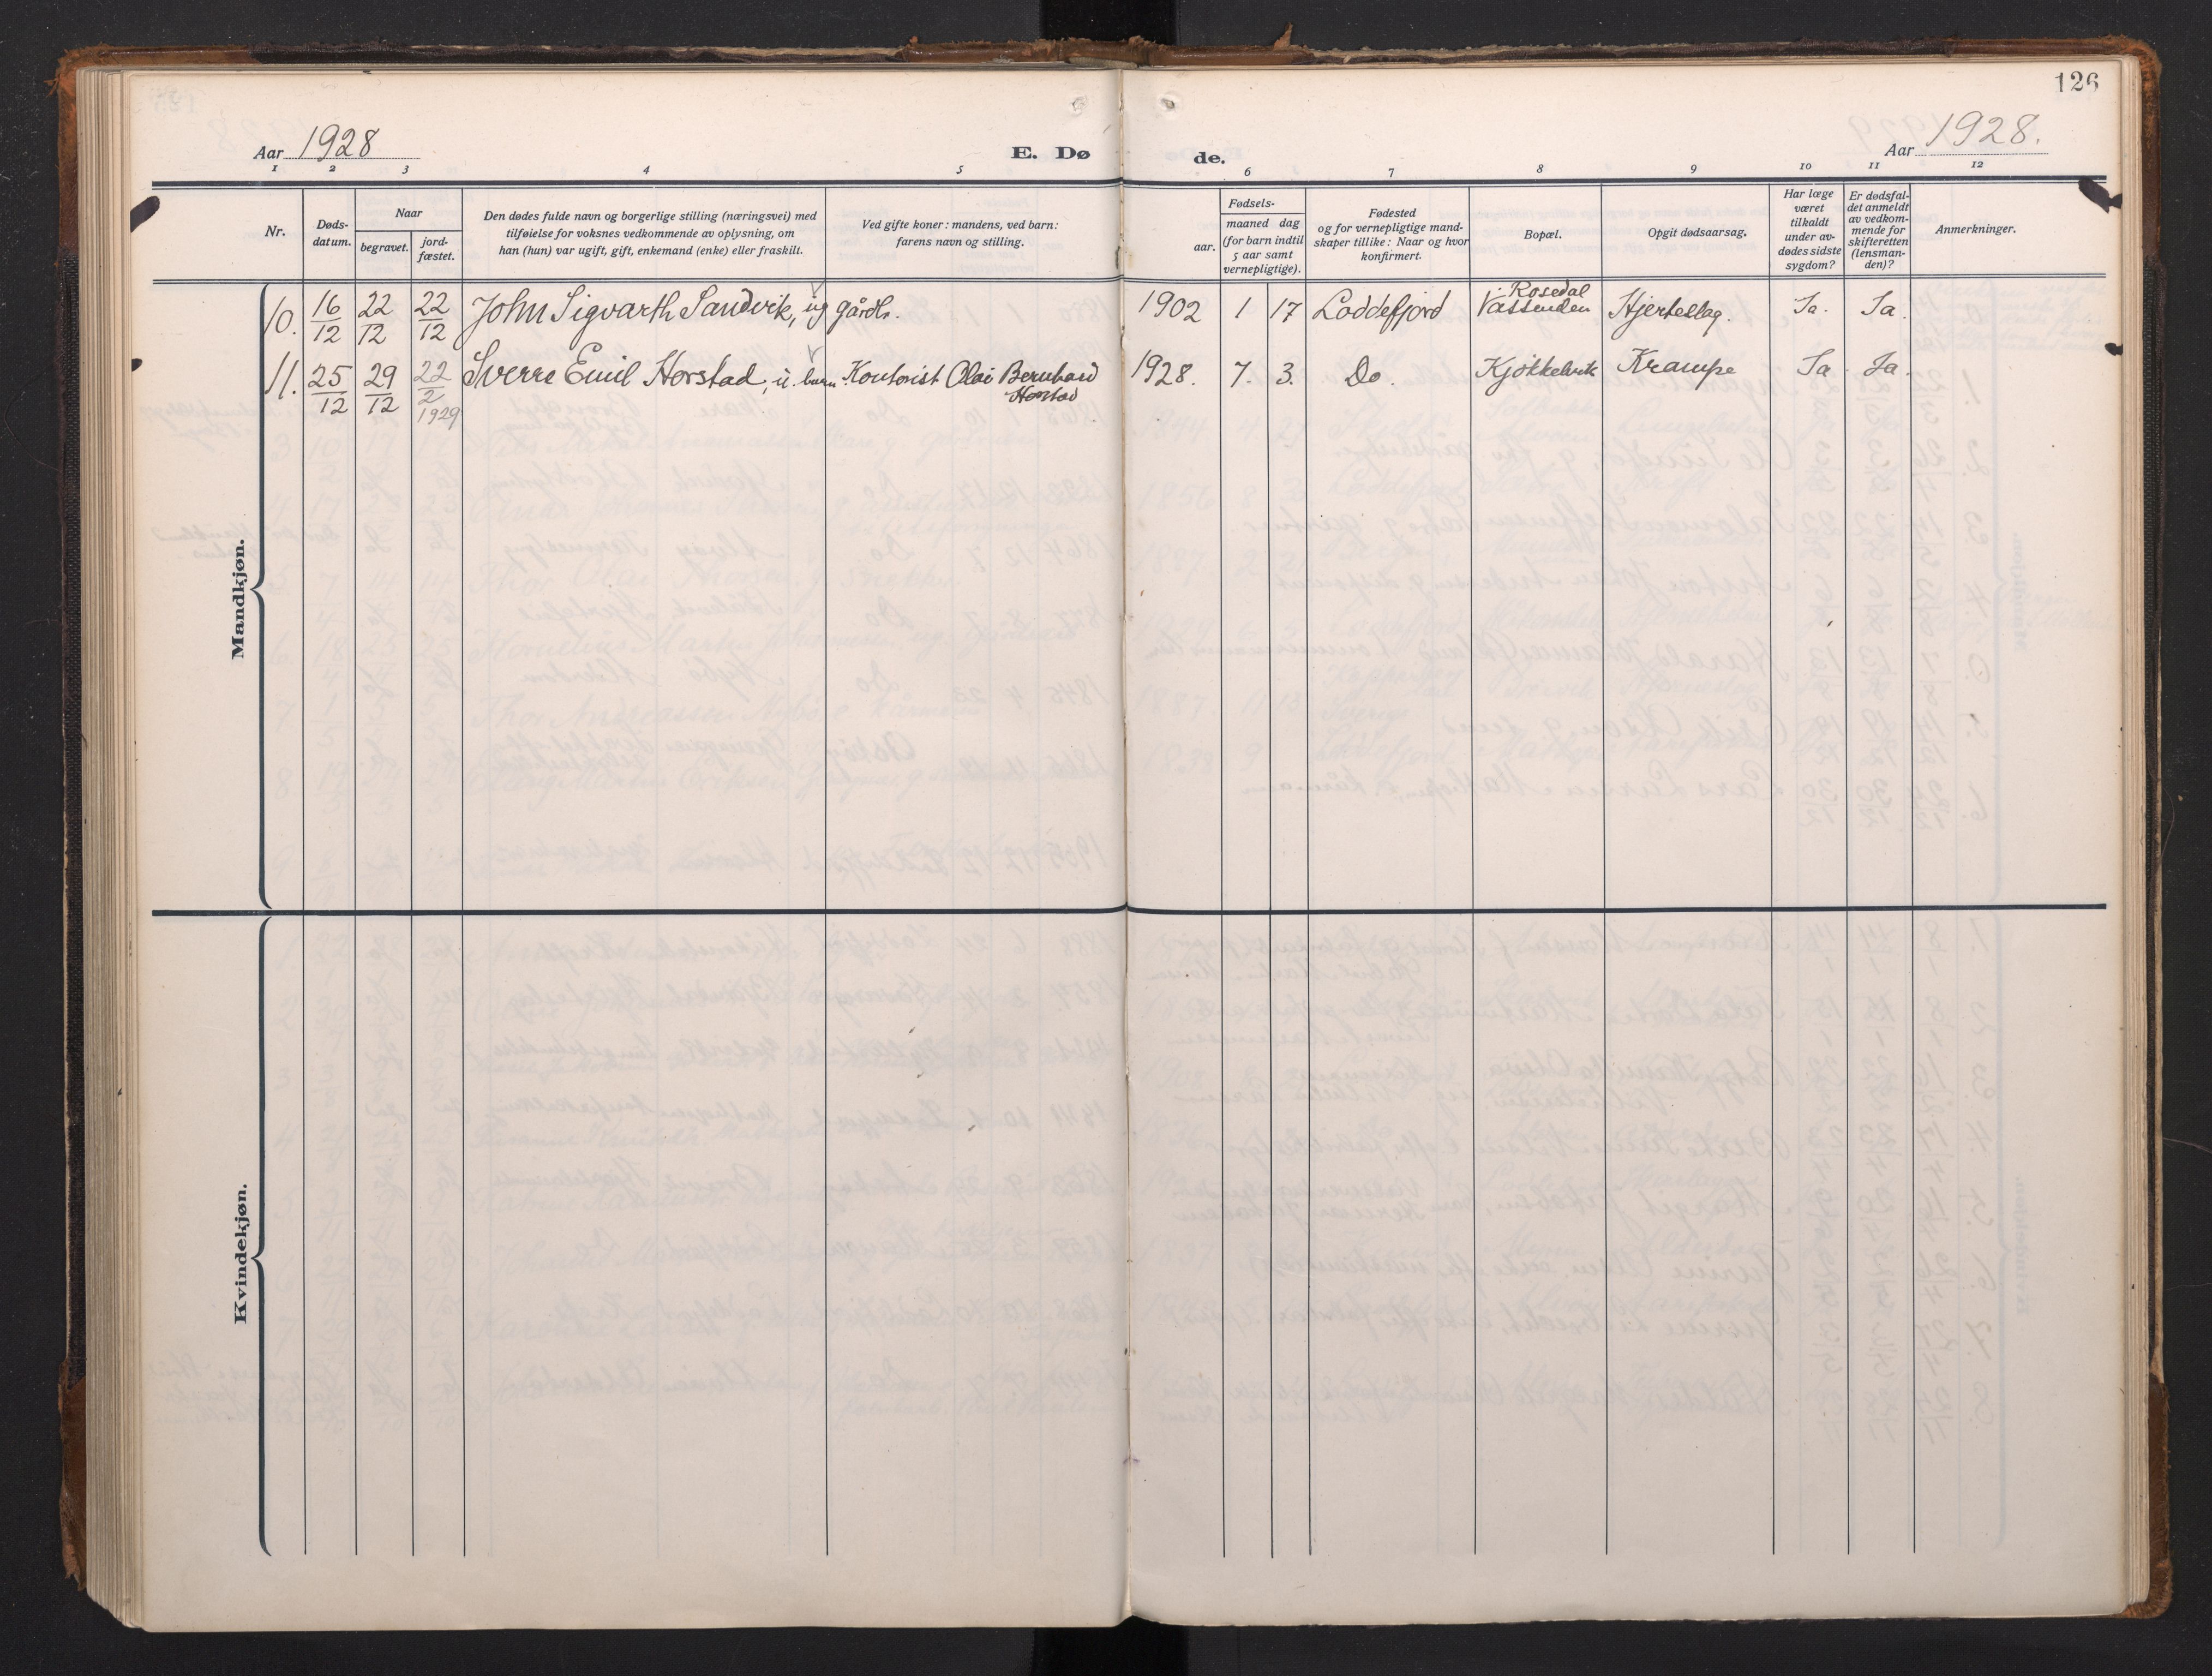 126
Aar 1928
E. Dø
de.
Aar 1928.
1 2 3 4 5 6 7 8 9 10 11 12
Nr.
Døds-
datum.
Naar
begravet.
jord-
fæstet.
Den dødes fulde navn og borgerlige stilling (næringsvei) med
tilføielse for voksnes vedkommende av oplysning, om
han (hun) var ugift, gift, enkemand (enke) eller fraskilt.
Ved gifte koner: mandens, ved barn:
farens navn og stilling.
Fødsels-
aar.
maaned dag
(for barn indtil
5 aar samt
vernepligtige).
Fødested
og for vernepligtige mand-
skaper tillike: Naar og hvor
konfirmert.
Bopæl.
Opgit dødsaarsag.
Har læge
været
tilkaldt
under av-
dødes sidste
sygdom?
Er dødsfal-
det anmeldt
av vedkom-
mende for
skifteretten
(lensman-
den)?
Anmerkninger.
Mandkjøn.
10. 16/12 22/12 22/12 John Sigvarth Sandvik, ug gårdbr. 1902 1 17 Loddefjord Rosedal Vassenden Hjerteslag. Ja. Ja.
11. 25/12 29/12 22/2 1929 Sverre Emil Horstad, u. barn Kontorist Olai Bernhard Horstad 1928. 7. 3. Do. Kjøkkelvik Krampe Ja Ja.
Kvindekjøn.